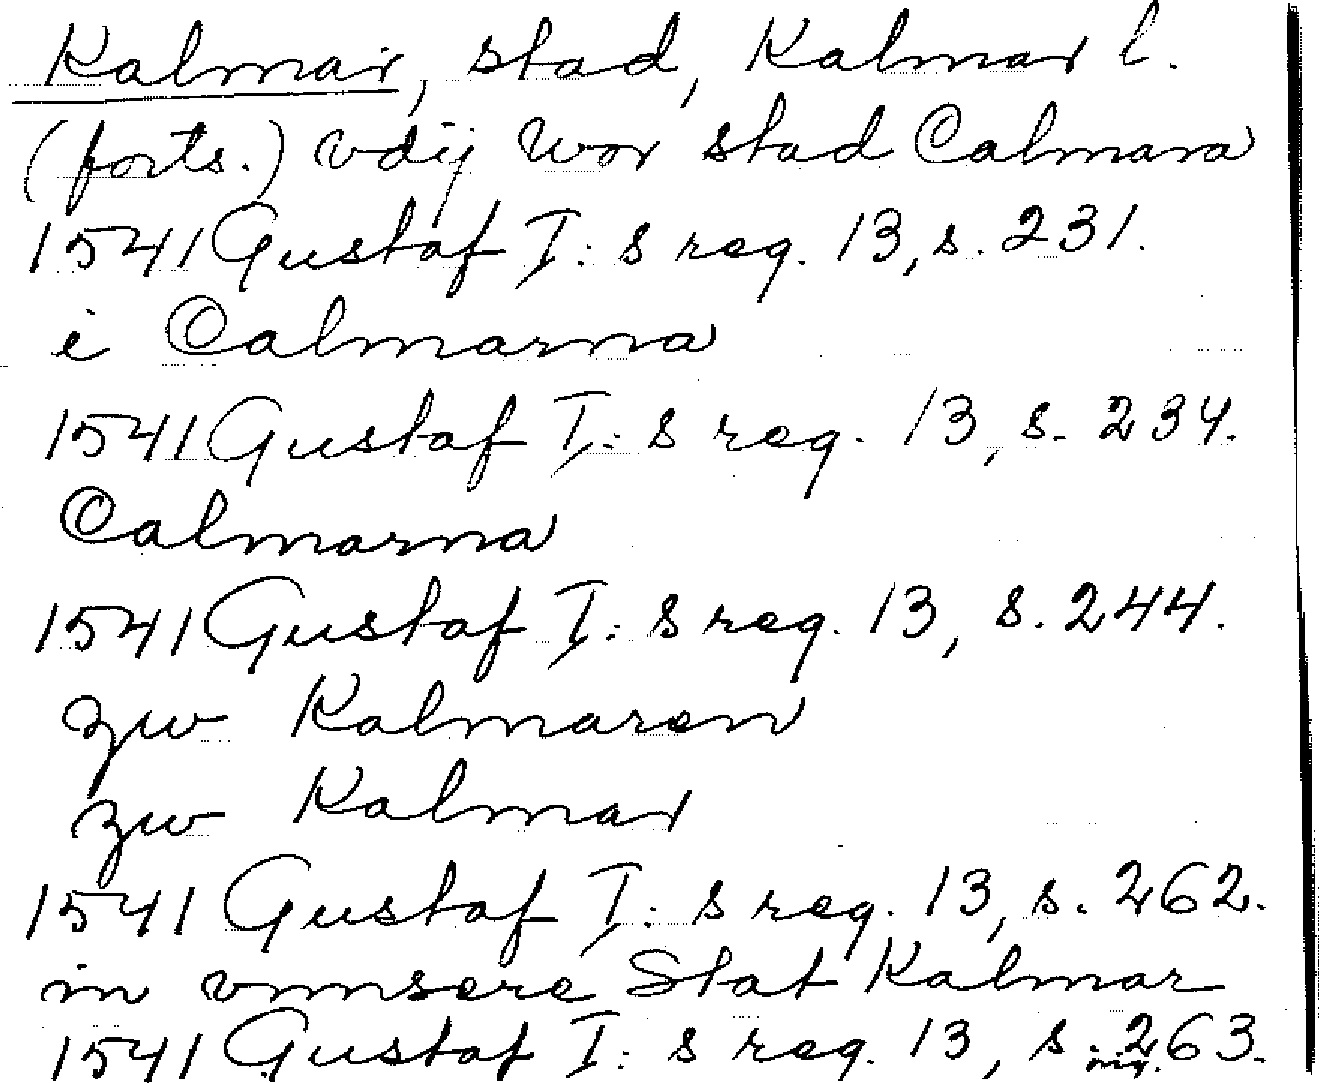 Kalmar, stad, Kalmar l.
(forts.) vdij wor stad Calmarna
1541 Gustaf I:s reg. 13, s. 231.
i Calmarna
1541 Gustaf I:s reg. 13, s. 234.
Calmarna
1541 Gustaf I:s reg. 13, s. 244.
zw Kalmaren
zw Kalmar
1541 Gustaf I:s reg. 13, s. 262.
in vnnsere Stat Kalmar
1541 Gustaf I:s reg. 13, s. 263.